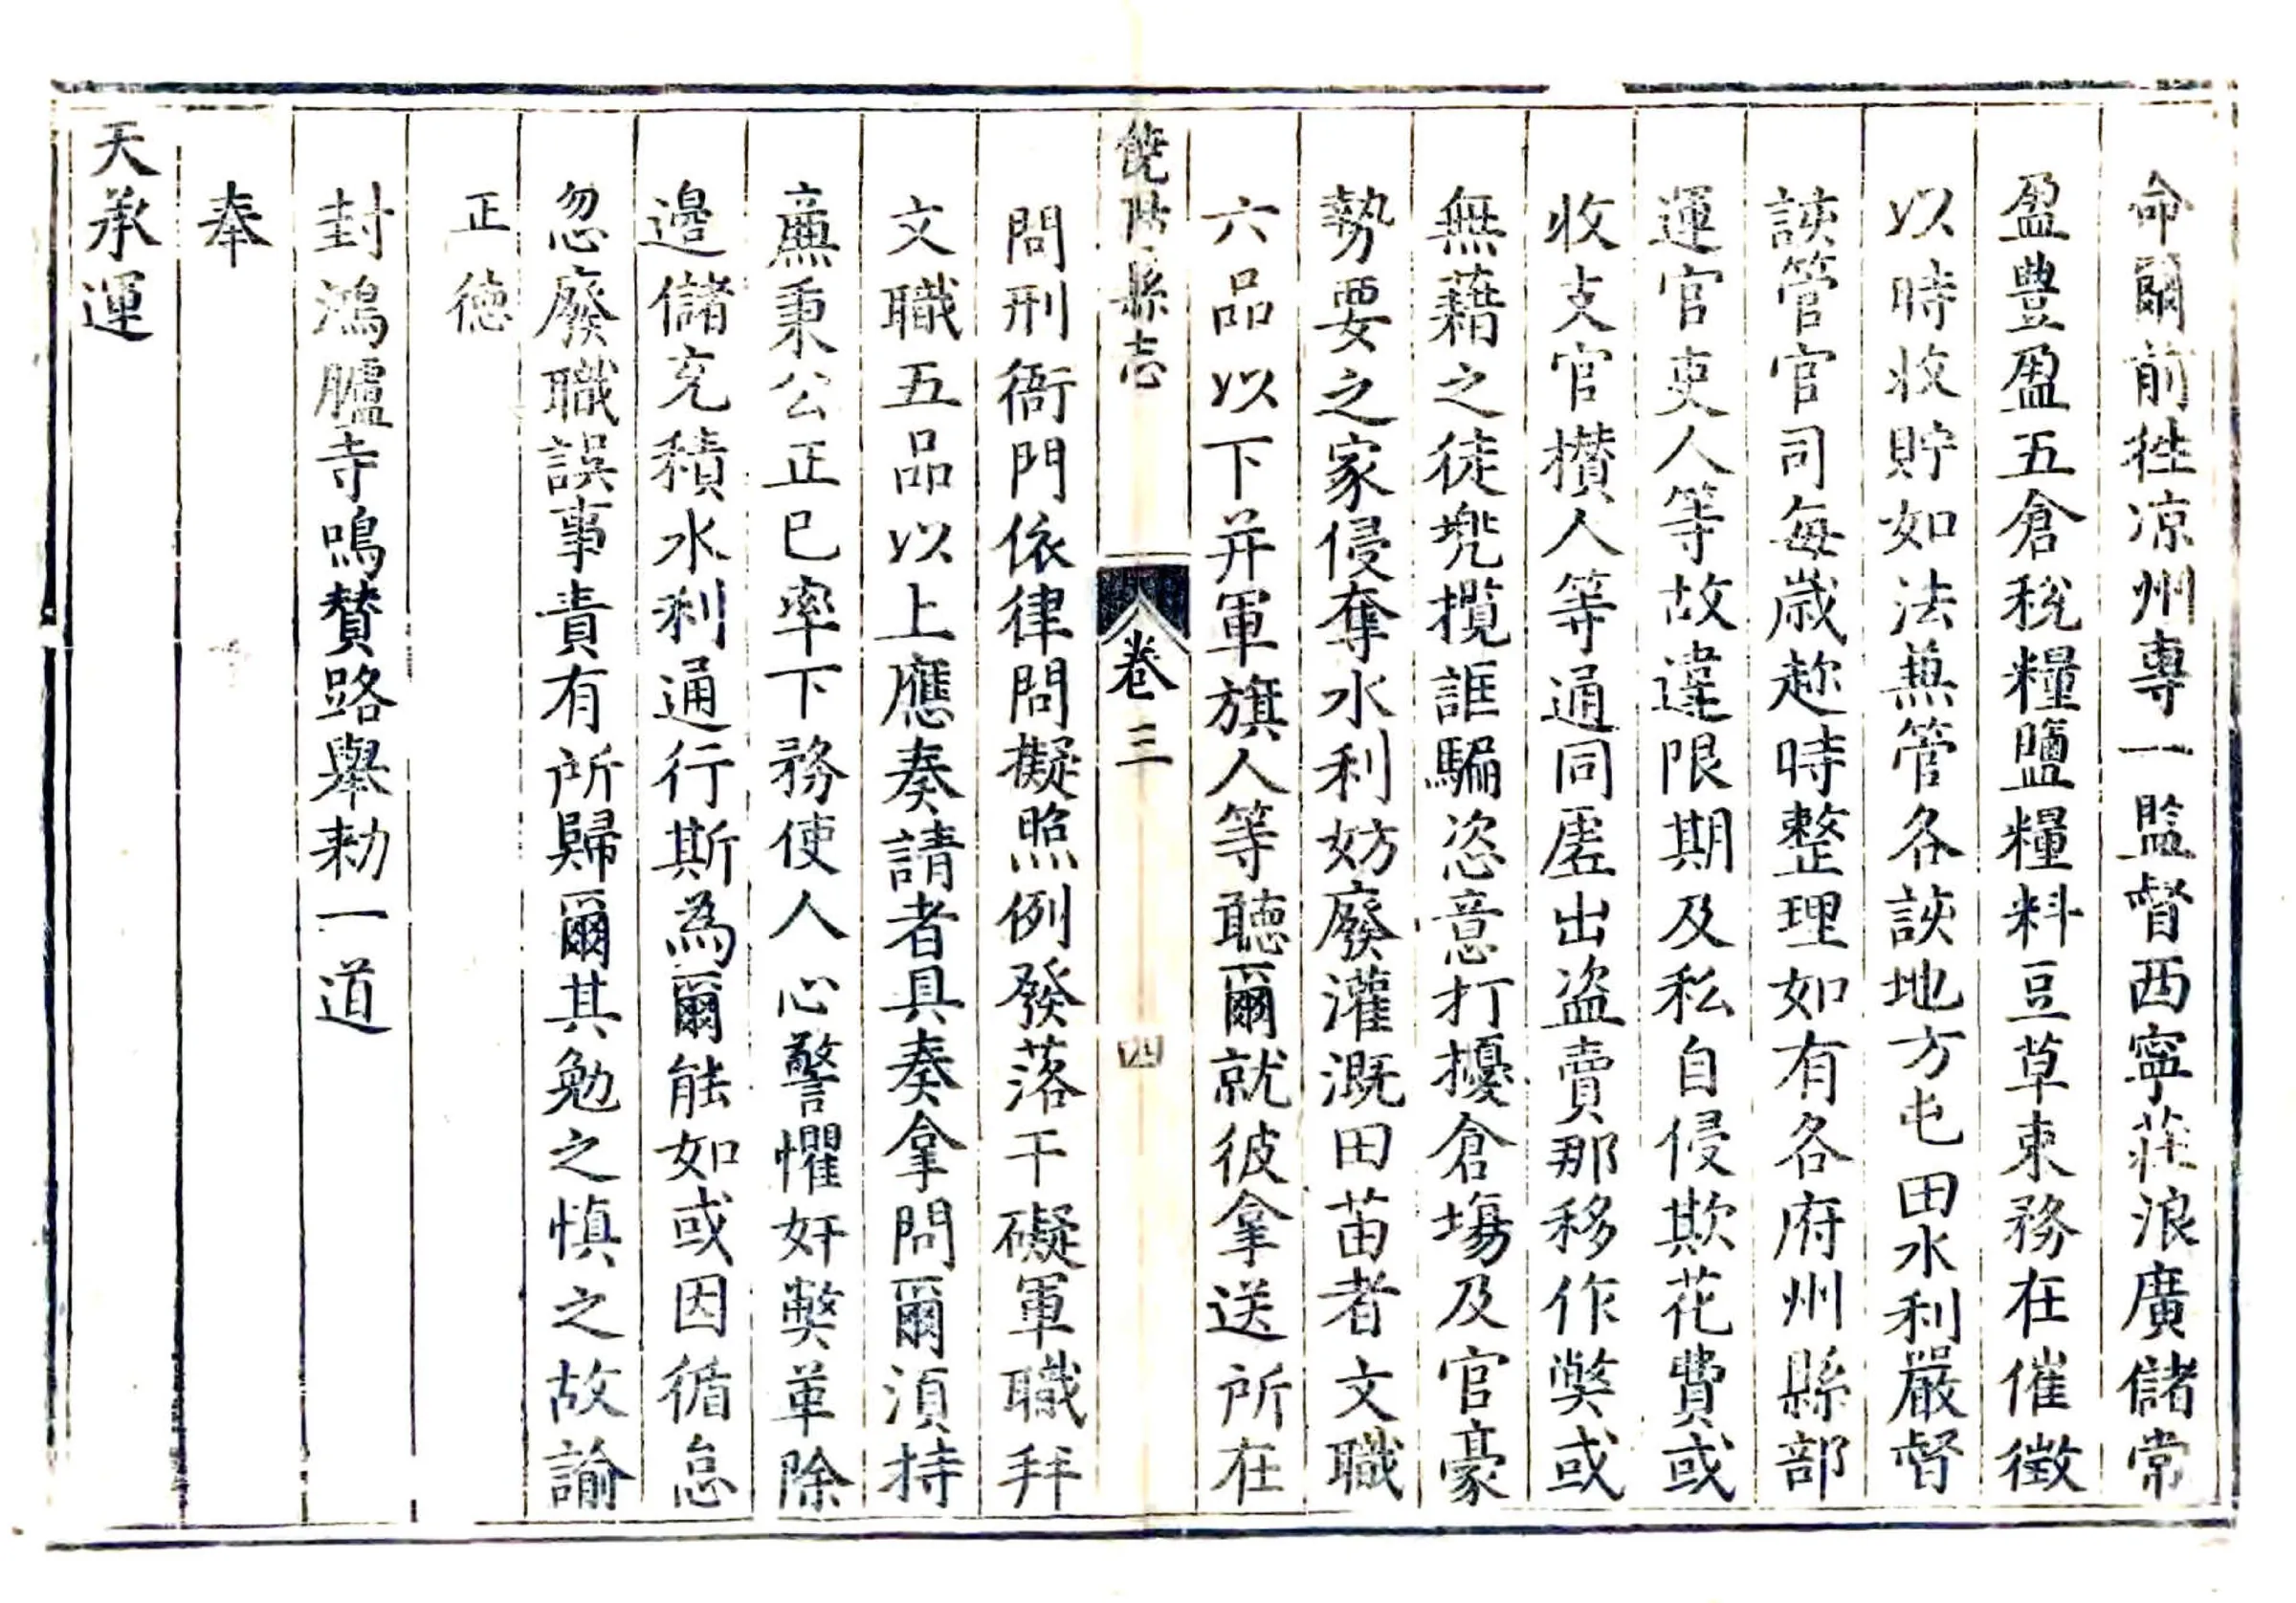 命爾前徃凉州專一監督西寧莊浪廣儲常
盈豊盈五倉稅糧鹽糧料豆草束務在催徵
以時收貯如法蕪管各該地方屯田水利嚴督
該管官司每歲趂時整理如有各府州縣部
運官吏人等故違限期及私自侵欺花費或
收支官攅人等通同虗出盗賣那移作弊或
無藉之徒兠攬誆騙恣意打擾倉塲及官豪
勢要之家侵奪水利妨廢灌溉田苗者文職
六品以下并軍旗人等聽爾就彼拿送所在
饒陽縣志
卷三
四
問刑衙門依律問擬照例發落干礙軍職并
文職五品以上應奏請者具奏拿問爾湏持
廉秉公正已率下務使人心警懼奸弊革除
邉儲充積水利通行斯為爾能如或因循怠
忽廢職誤事責有所歸爾其勉之慎之故諭
正德
封鴻臚寺鳴賛路舉勑一道
奉
天承運